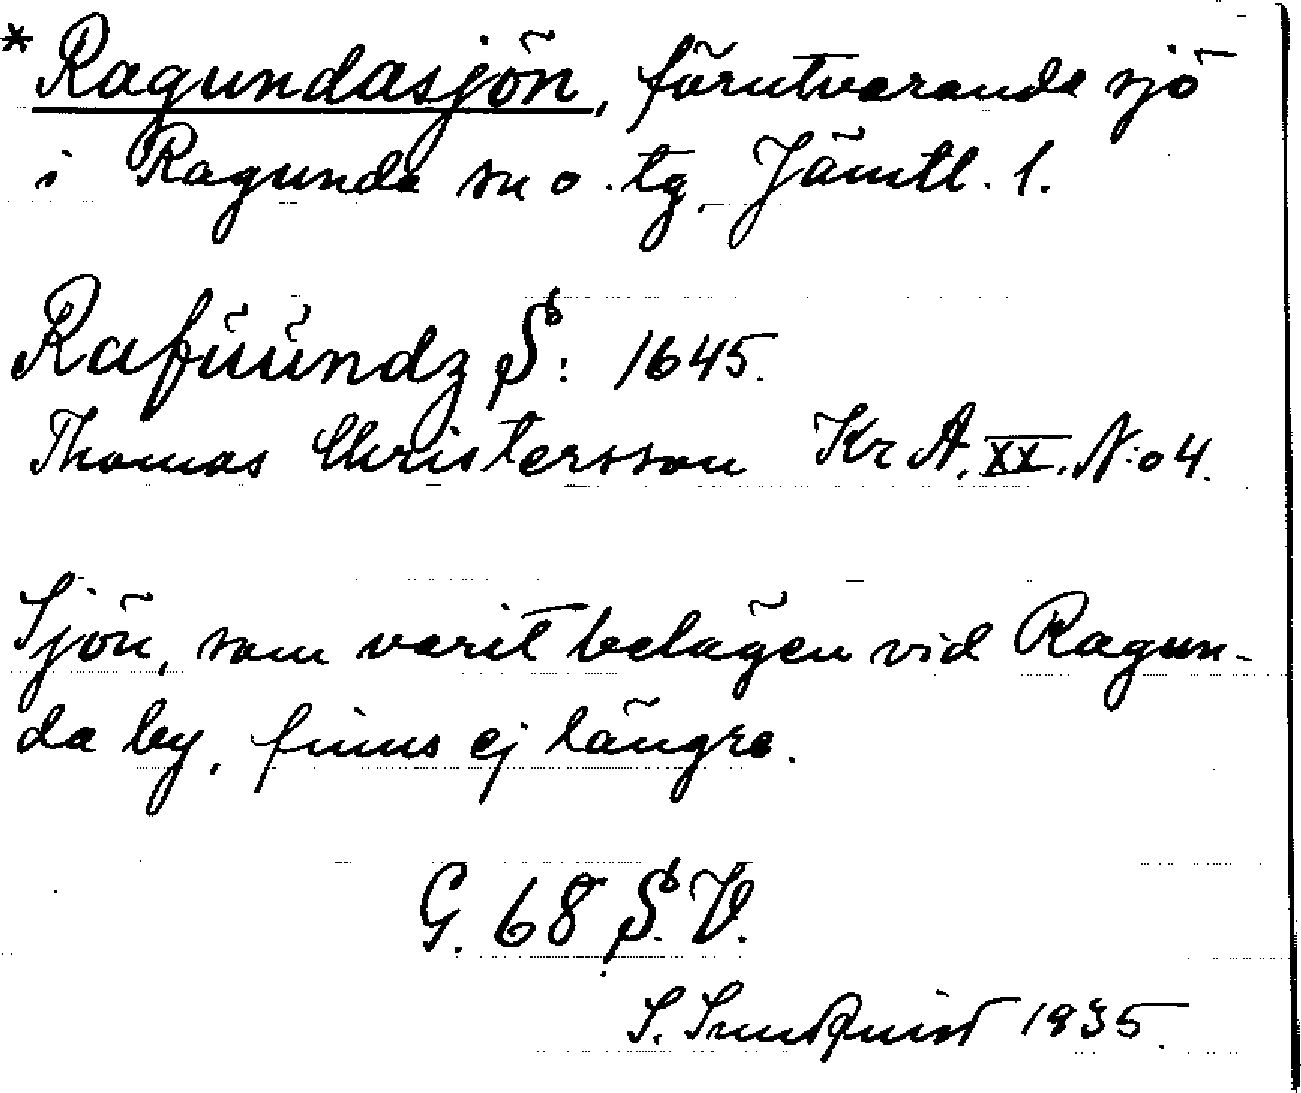 * Ragundasjön, förutvarande sjö
i Ragunda sn o. tg. Jämtl. l.
Rafüündz S: 1645.
Thomas Christersson Kr A. XX. N:o 4.
Sjön, som varit belägen vid Ragun-
da by, finns ej längre.
G. 68 S. V.
S. Sundquist 1935.